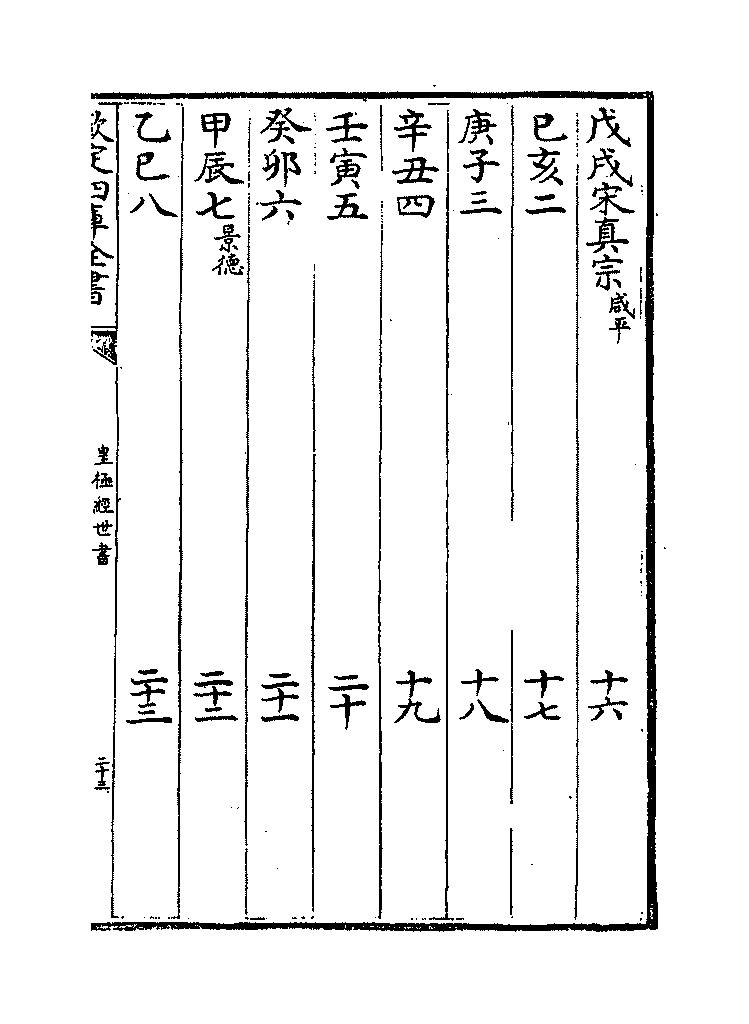 戊戌宋真宗咸平 十六
已亥二 十七
庚子三 十八
辛丑四 十九
壬寅五 二十
癸卯六 二十一
甲辰七景德 二十二
乙巳八 二十三
欽定四庫全書 皇極經世書 二十三